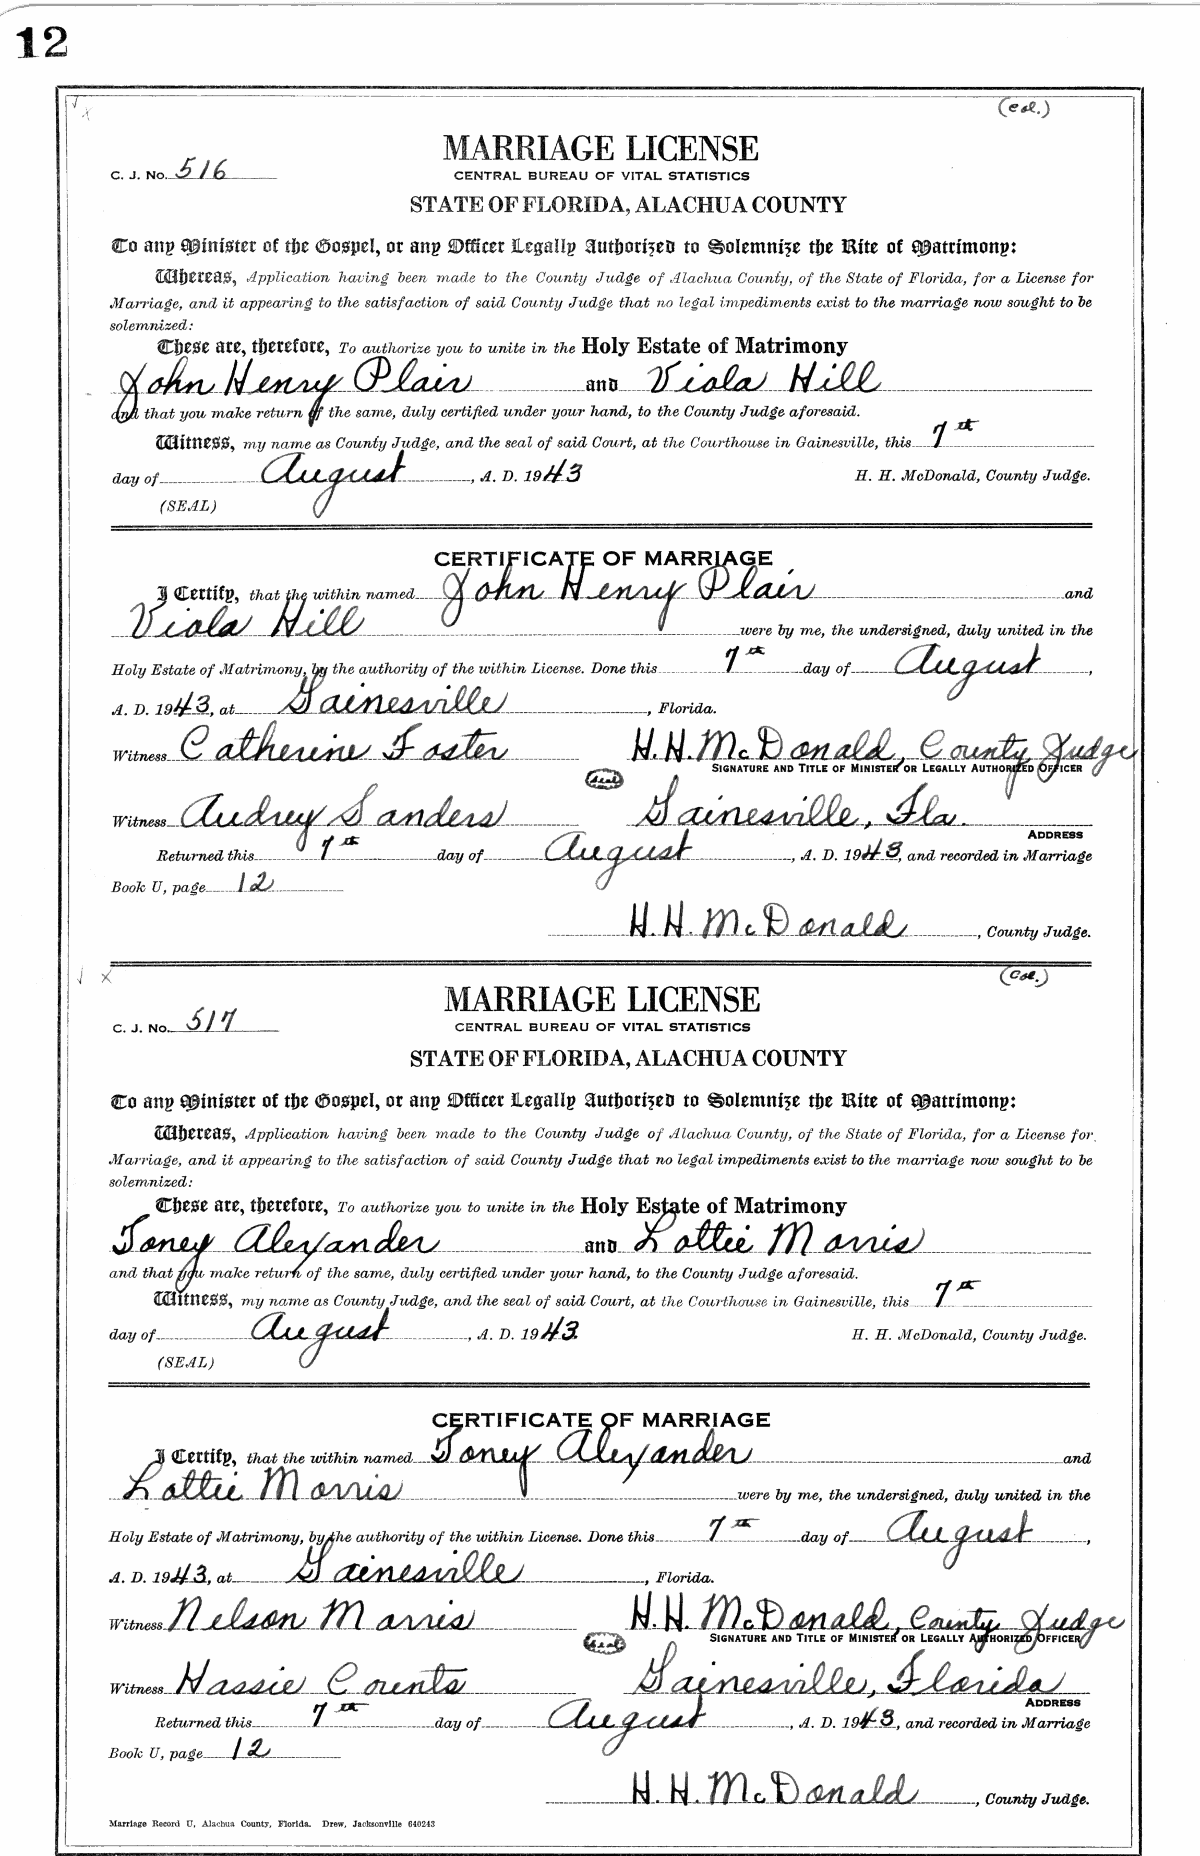 12
(Col.)
MARRIAGE LICENSE
C. J. No. 516
CENTRAL BUREAU OF VITAL STATISTICS
STATE OF FLORIDA, ALACHUA COUNTY
To any Minister of the Gospel, or any Officer Legally Authorized to Solemnize the Rite of Matrimony:
Whereas, Application having been made to the County Judge of Alachua County, of the State of Florida, for a License for
Marriage, and it appearing to the satisfaction of said County Judge that no legal impediments exist to the marriage now sought to be
solemnized:
These are, therefore, To authorize you to unite in the Holy Estate of Matrimony
John Henry Plair and Viola Hill
and that you make return of the same, duly certified under your hand, to the County Judge aforesaid.
Witness, my name as County Judge, and the seal of said Court, at the Courthouse in Gainesville, this 7th
day of August, A. D. 1943 H. H. McDonald, County Judge.
(SEAL)
CERTIFICATE OF MARRIAGE
I Certify, that the within named John Henry Plair and
Viola Hill were by me, the undersigned, duly united in the
Holy Estate of Matrimony, by the authority of the within License. Done this 7th day of August,
A. D. 1943, at Gainesville, Florida.
Witness Catherine Foster H. H. McDonald, County Judge
SIGNATURE AND TITLE OF MINISTER OR LEGALLY AUTHORIZED OFFICER
Seal
Witness Audrey Sanders Gainesville, Fla.
ADDRESS
Returned this 7th day of August, A. D. 1943, and recorded in Marriage
Book U, page 12
H. H. McDonald, County Judge.
(Col.)
MARRIAGE LICENSE
C. J. No. 517
CENTRAL BUREAU OF VITAL STATISTICS
STATE OF FLORIDA, ALACHUA COUNTY
To any Minister of the Gospel, or any Officer Legally Authorized to Solemnize the Rite of Matrimony:
Whereas, Application having been made to the County Judge of Alachua County, of the State of Florida, for a License for
Marriage, and it appearing to the satisfaction of said County Judge that no legal impediments exist to the marriage now sought to be
solemnized:
These are, therefore, To authorize you to unite in the Holy Estate of Matrimony
Toney Alexander and Lottie Morris
and that you make return of the same, duly certified under your hand, to the County Judge aforesaid.
Witness, my name as County Judge, and the seal of said Court, at the Courthouse in Gainesville, this 7th
day of August, A. D. 1943 H. H. McDonald, County Judge.
(SEAL)
CERTIFICATE OF MARRIAGE
I Certify, that the within named Toney Alexander and
Lottie Morris were by me, the undersigned, duly united in the
Holy Estate of Matrimony, by the authority of the within License. Done this 7th day of August,
A. D. 1943, at Gainesville, Florida.
Witness Nelson Morris H. H. McDonald, County Judge
SIGNATURE AND TITLE OF MINISTER OR LEGALLY AUTHORIZED OFFICER
Seal
Witness Hassie Counts Gainesville, Florida
ADDRESS
Returned this 7th day of August, A. D. 1943, and recorded in Marriage
Book U, page 12
H. H. McDonald, County Judge.
Marriage Record U, Alachua County, Florida. Drew, Jacksonville 640243